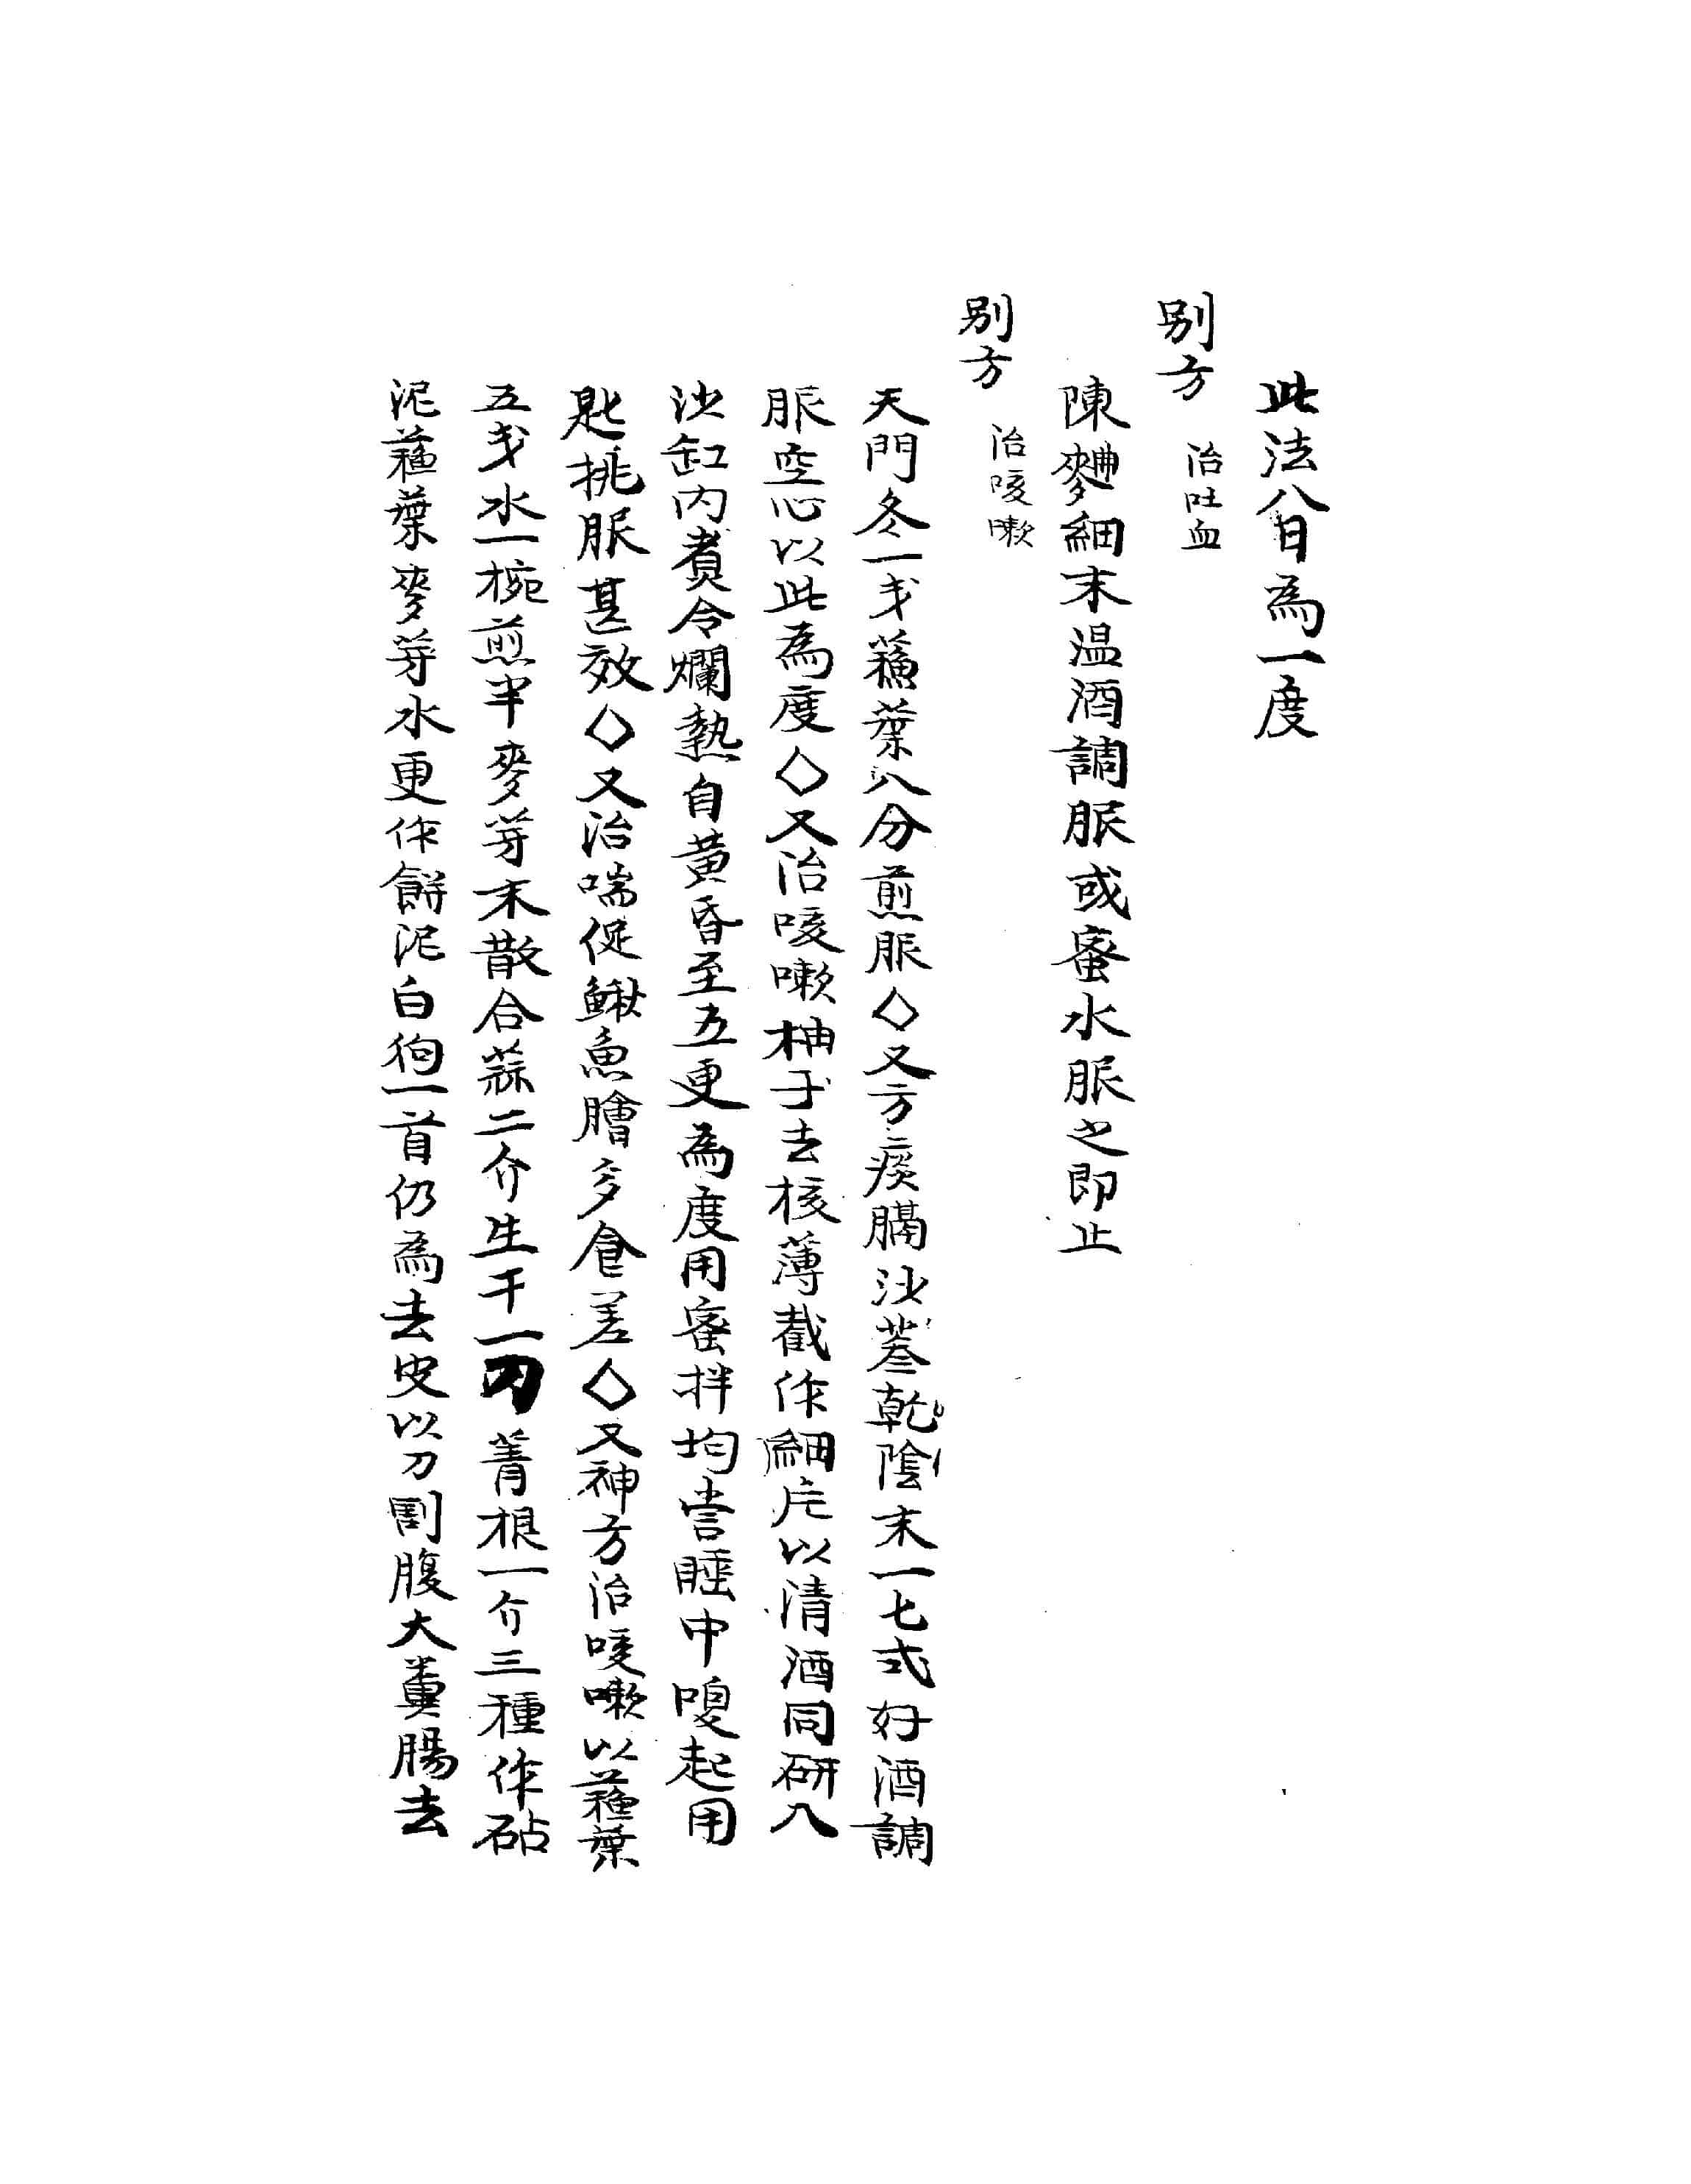 此法八日為一度
別方 治吐血
陳麯細末温酒調服或蜜水服之即止
別方 治咳嗽
天門冬一戔蘓葉八分煎服◇又方痰膈沙蔘乾陰末一七式好酒調
服空心以此為度◇又治咳嗽柚子去核薄截作細片以清酒同研入
沙缸内煮令爛熟自黄昏至五更為度用蜜拌均嘗睡中嗖起用
匙挑服甚效◇又治喘促鰍魚膾多食差◇又神方治咳嗽以蘓葉
五戔水一椀煎半麥芽末散合蒜二介生干一刀菁根一介三種作砧
泥蘓葉麥芽水更作餠泥白狗一首仍為去皮以刀割腹大糞腸去